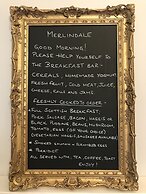 MERLINDALE
GOOD MORNING!
PLEASE HELP YOURSELF TO
THE BREAKFAST BAR -
CEREALS, HOMEMADE YOGHURT
FRESH FRUIT, COLD MEAT, JUICE,
CHEESE, ROLLS AND JAMS.
FRESHLY COOKED TO ORDER -
FULL SCOTTISH BREAKFAST:
PORK SAUSAGE, BACON, HAGGIS OR
BLACK PUDDING, BEANS, MUSHROOM
TOMATO, EGGS (OF YOUR CHOICE)
(VEGETARIAN SAUSAGE AVAILABLE)
SMOKED SALMON & SCRAMBLED EGGS
PORRIDGE
ALL SERVED WITH TEA, COFFEE, TOAST
ENJOY!